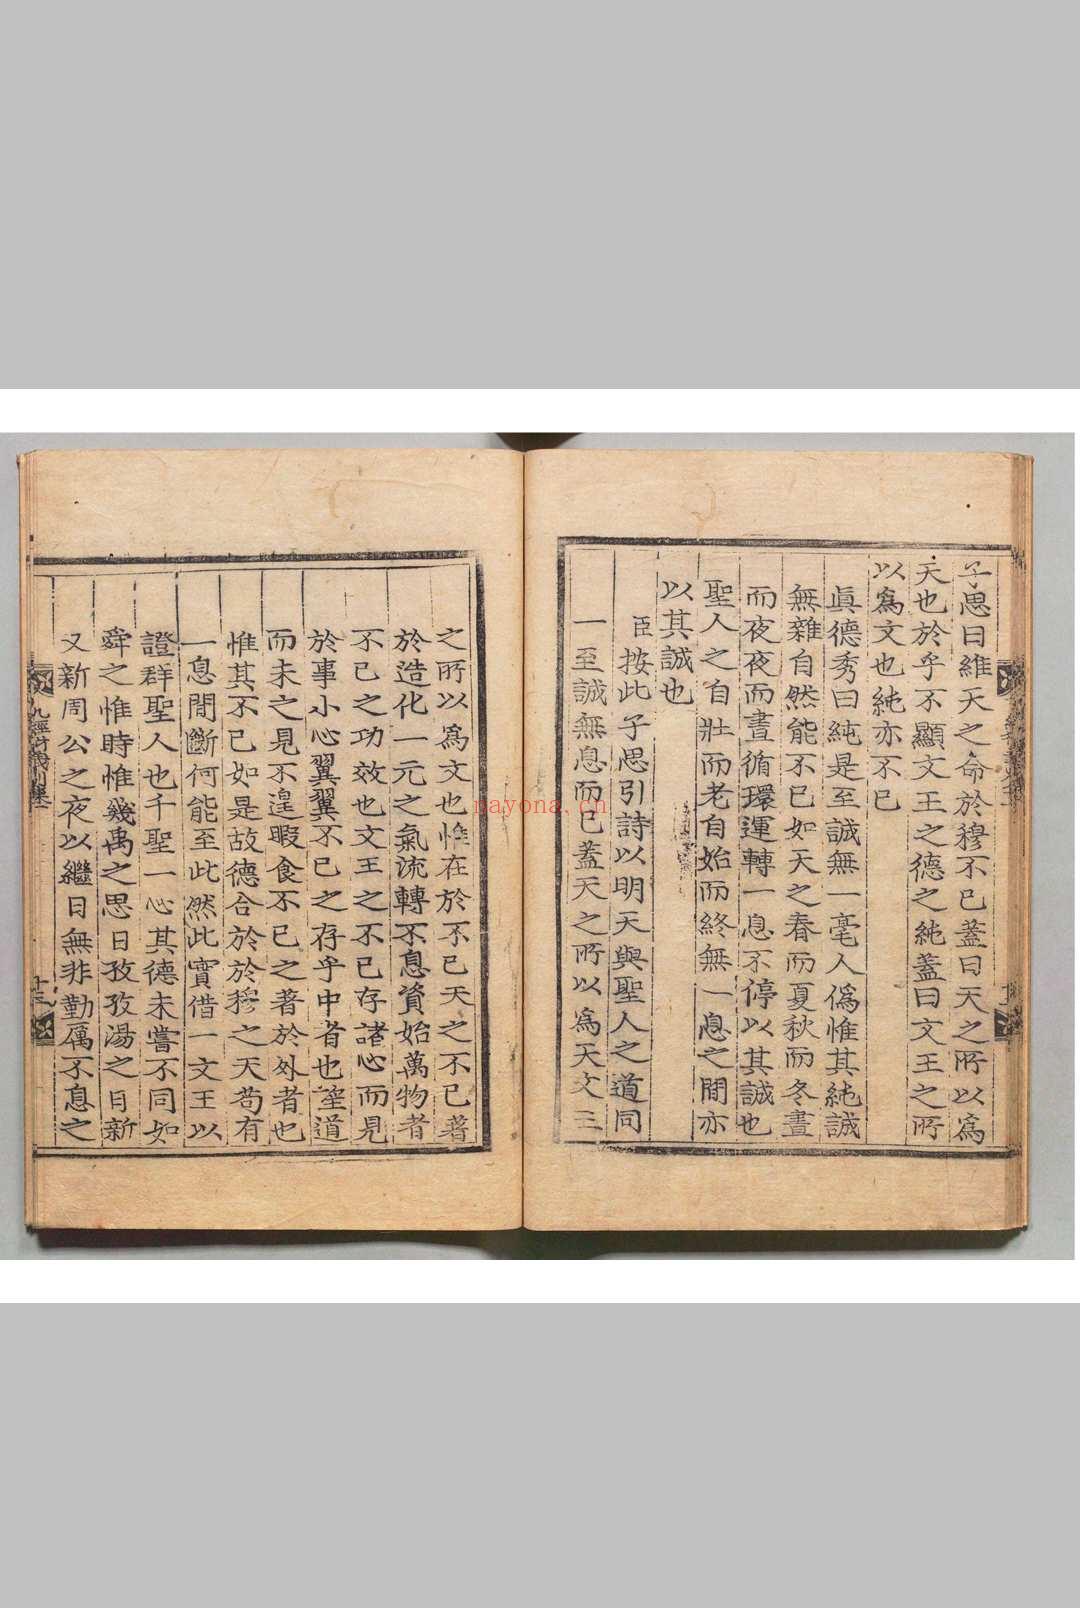 子思曰維天之命於穆不已蓋曰天之所以爲
天也於乎不顯文王之德之純蓋曰文王之所
以爲文也純亦不已
眞德秀曰純是至誠無一毫人僞惟其純誠
無雜自然能不已如天之春而夏秋而冬晝
而夜夜而晝循環運轉一息不停以其誠也
聖人之自壯而老自始而終無一息之間亦
以其誠也
臣按此子思引詩以明天與聖人之道同
一至誠無息而已蓋天之所以爲天文王
之所以爲文也惟在於不已天之不已著
於造化一元之氣流轉不息資始萬物者
不已之功效也文王之不已存諸心而見
於事小心翼翼不已之存乎中者也望道
而未之見不遑暇食不已之著於外者也
惟其不已如是故德合於於穆之天苟有
一息間斷何能至此然此實借一文王以
證群聖人也千聖一心其德未嘗不同如
舜之惟時惟幾禹之思日孜孜湯之日新
又新周公之夜以繼日無非勤厲不息之
九經衍義別集
nayona.cn